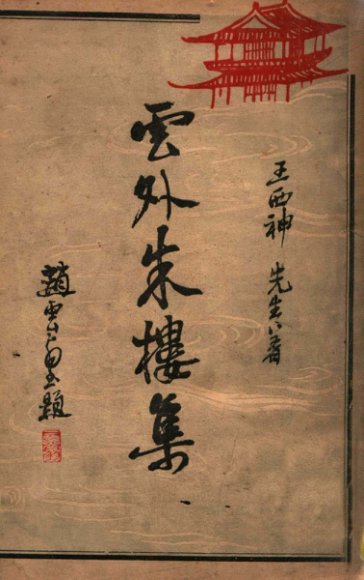 王西神 先生著
雲外朱樓集
趙雲壑題